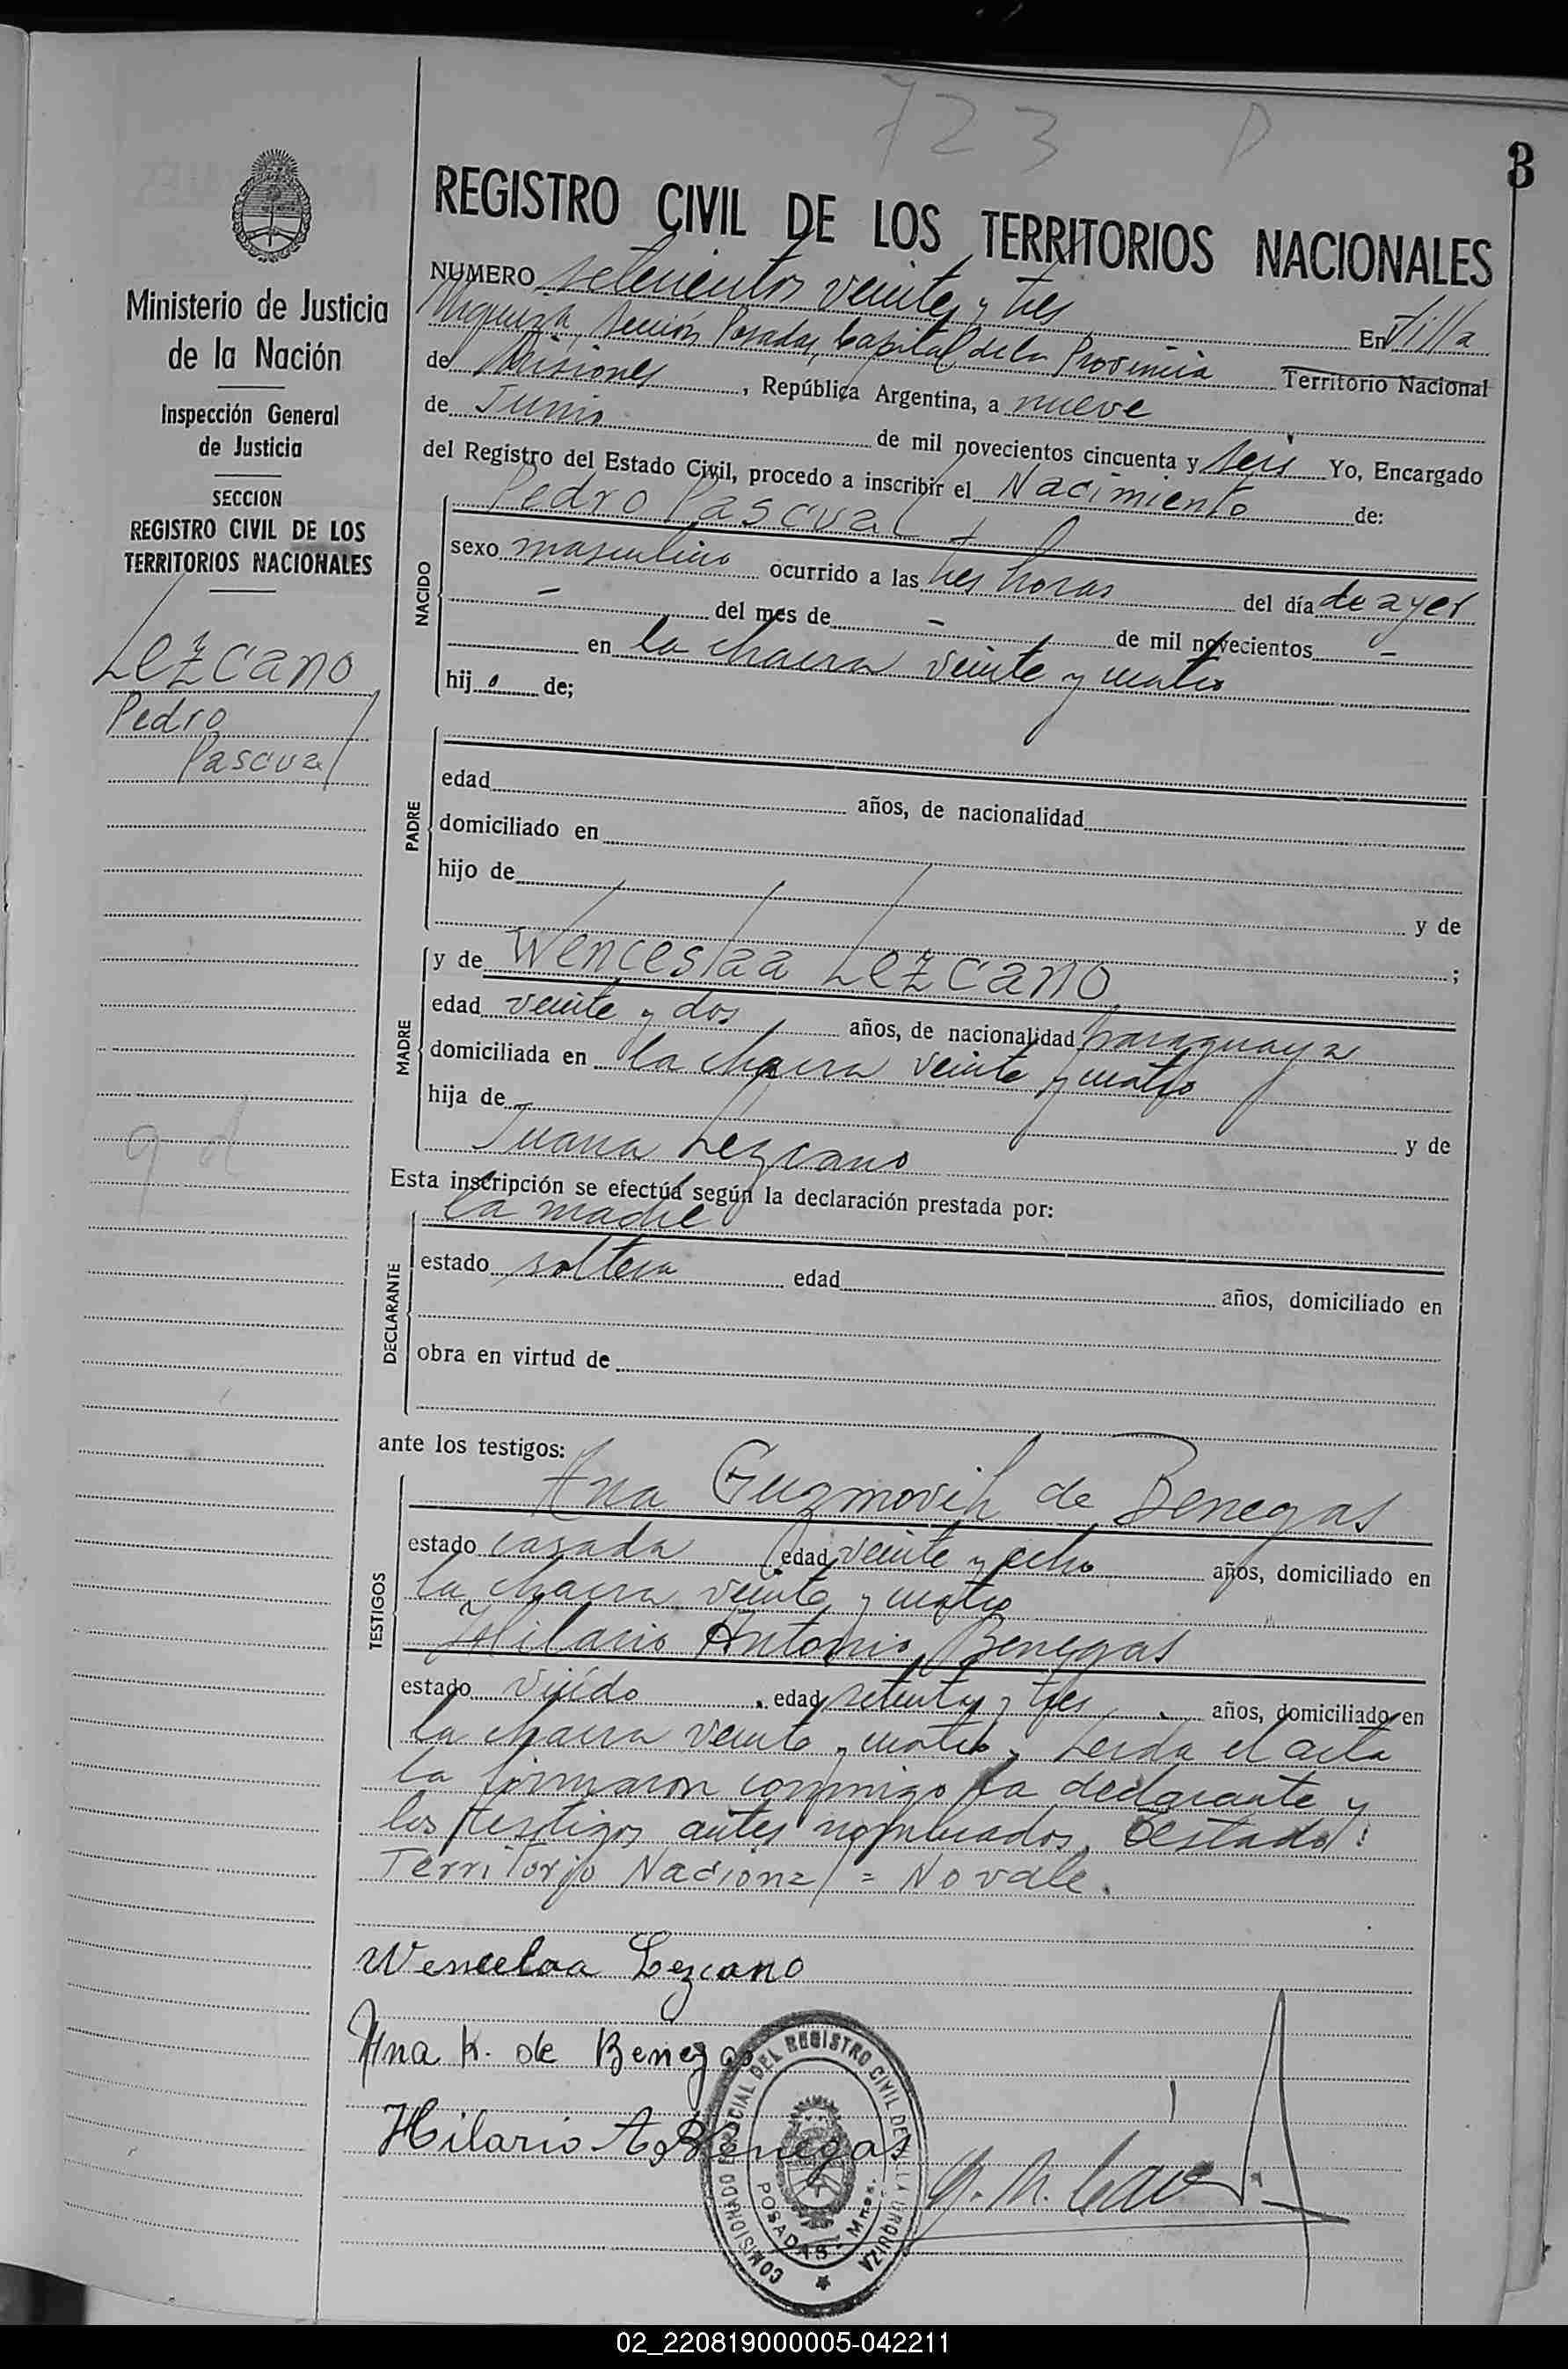 723 P
3
REGISTRO CIVIL DE LOS TERRITORIOS NACIONALES
Ministerio de Justicia
de la Nación
Inspección General
de Justicia
SECCION
REGISTRO CIVIL DE LOS
TERRITORIOS NACIONALES
Lezcano
Pedro
Pascual
NUMERO setecientos veinte y tres En Villa
Urquiza, sección Posadas, Capital de la Provincia Territorio Nacional
de Misiones, República Argentina, a nueve
de Junio de mil novecientos cincuenta y seis Yo, Encargado
del Registro del Estado Civil, procedo a inscribir el Nacimiento de:
NACIDO
Pedro Pascual
sexo masculino ocurrido a las tres horas del día de ayer
- del mes de - de mil novecientos -
en la chacra veinte y cuatro
hijo de;
PADRE
edad años, de nacionalidad
domiciliado en
hijo de
y de
;
MADRE
y de Wenceslaa Lezcano
edad veinte y dos años, de nacionalidad paraguaya
domiciliada en la chacra veinte y cuatro
hija de - y de
Juana Lezcano
Esta inscripción se efectúa según la declaración prestada por:
DECLARANTE
la madre
estado soltera edad años, domiciliado en
obra en virtud de
ante los testigos:
TESTIGOS
Ana Guzmovih de Benegas
estado casada edad veinte y ocho años, domiciliado en
la chacra veinte y cuatro
Hilario Antonio Benegas
estado viúdo edad setenta y tres años, domiciliado en
la chacra veinte y cuatro. Leida el acta
la firmaron conmigo la declarante y
los testigos antes nombrados. Testado:
Territorio Nacional = No vale.
Wencelaa Lezcano
Ana K. de Benegas
Hilario A. Benegas
COMISIONADO ESPECIAL DEL REGISTRO CIVIL DE VILLA URQUIZA
POSADAS - Mnes.
02_220819000005-042211